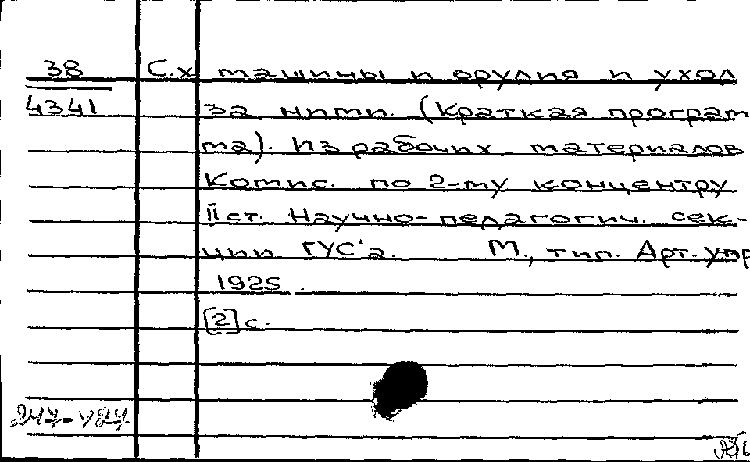 38 С.х. машины и орудия и уход
4341 за ними. (Краткая програм
ма). Из рабочих материалов
Комис. по 2-му концентру
II ст. Научно-педагогич. сек-
ции ГУС'а. М., тип. Арт. упр
1925.
[2] с.